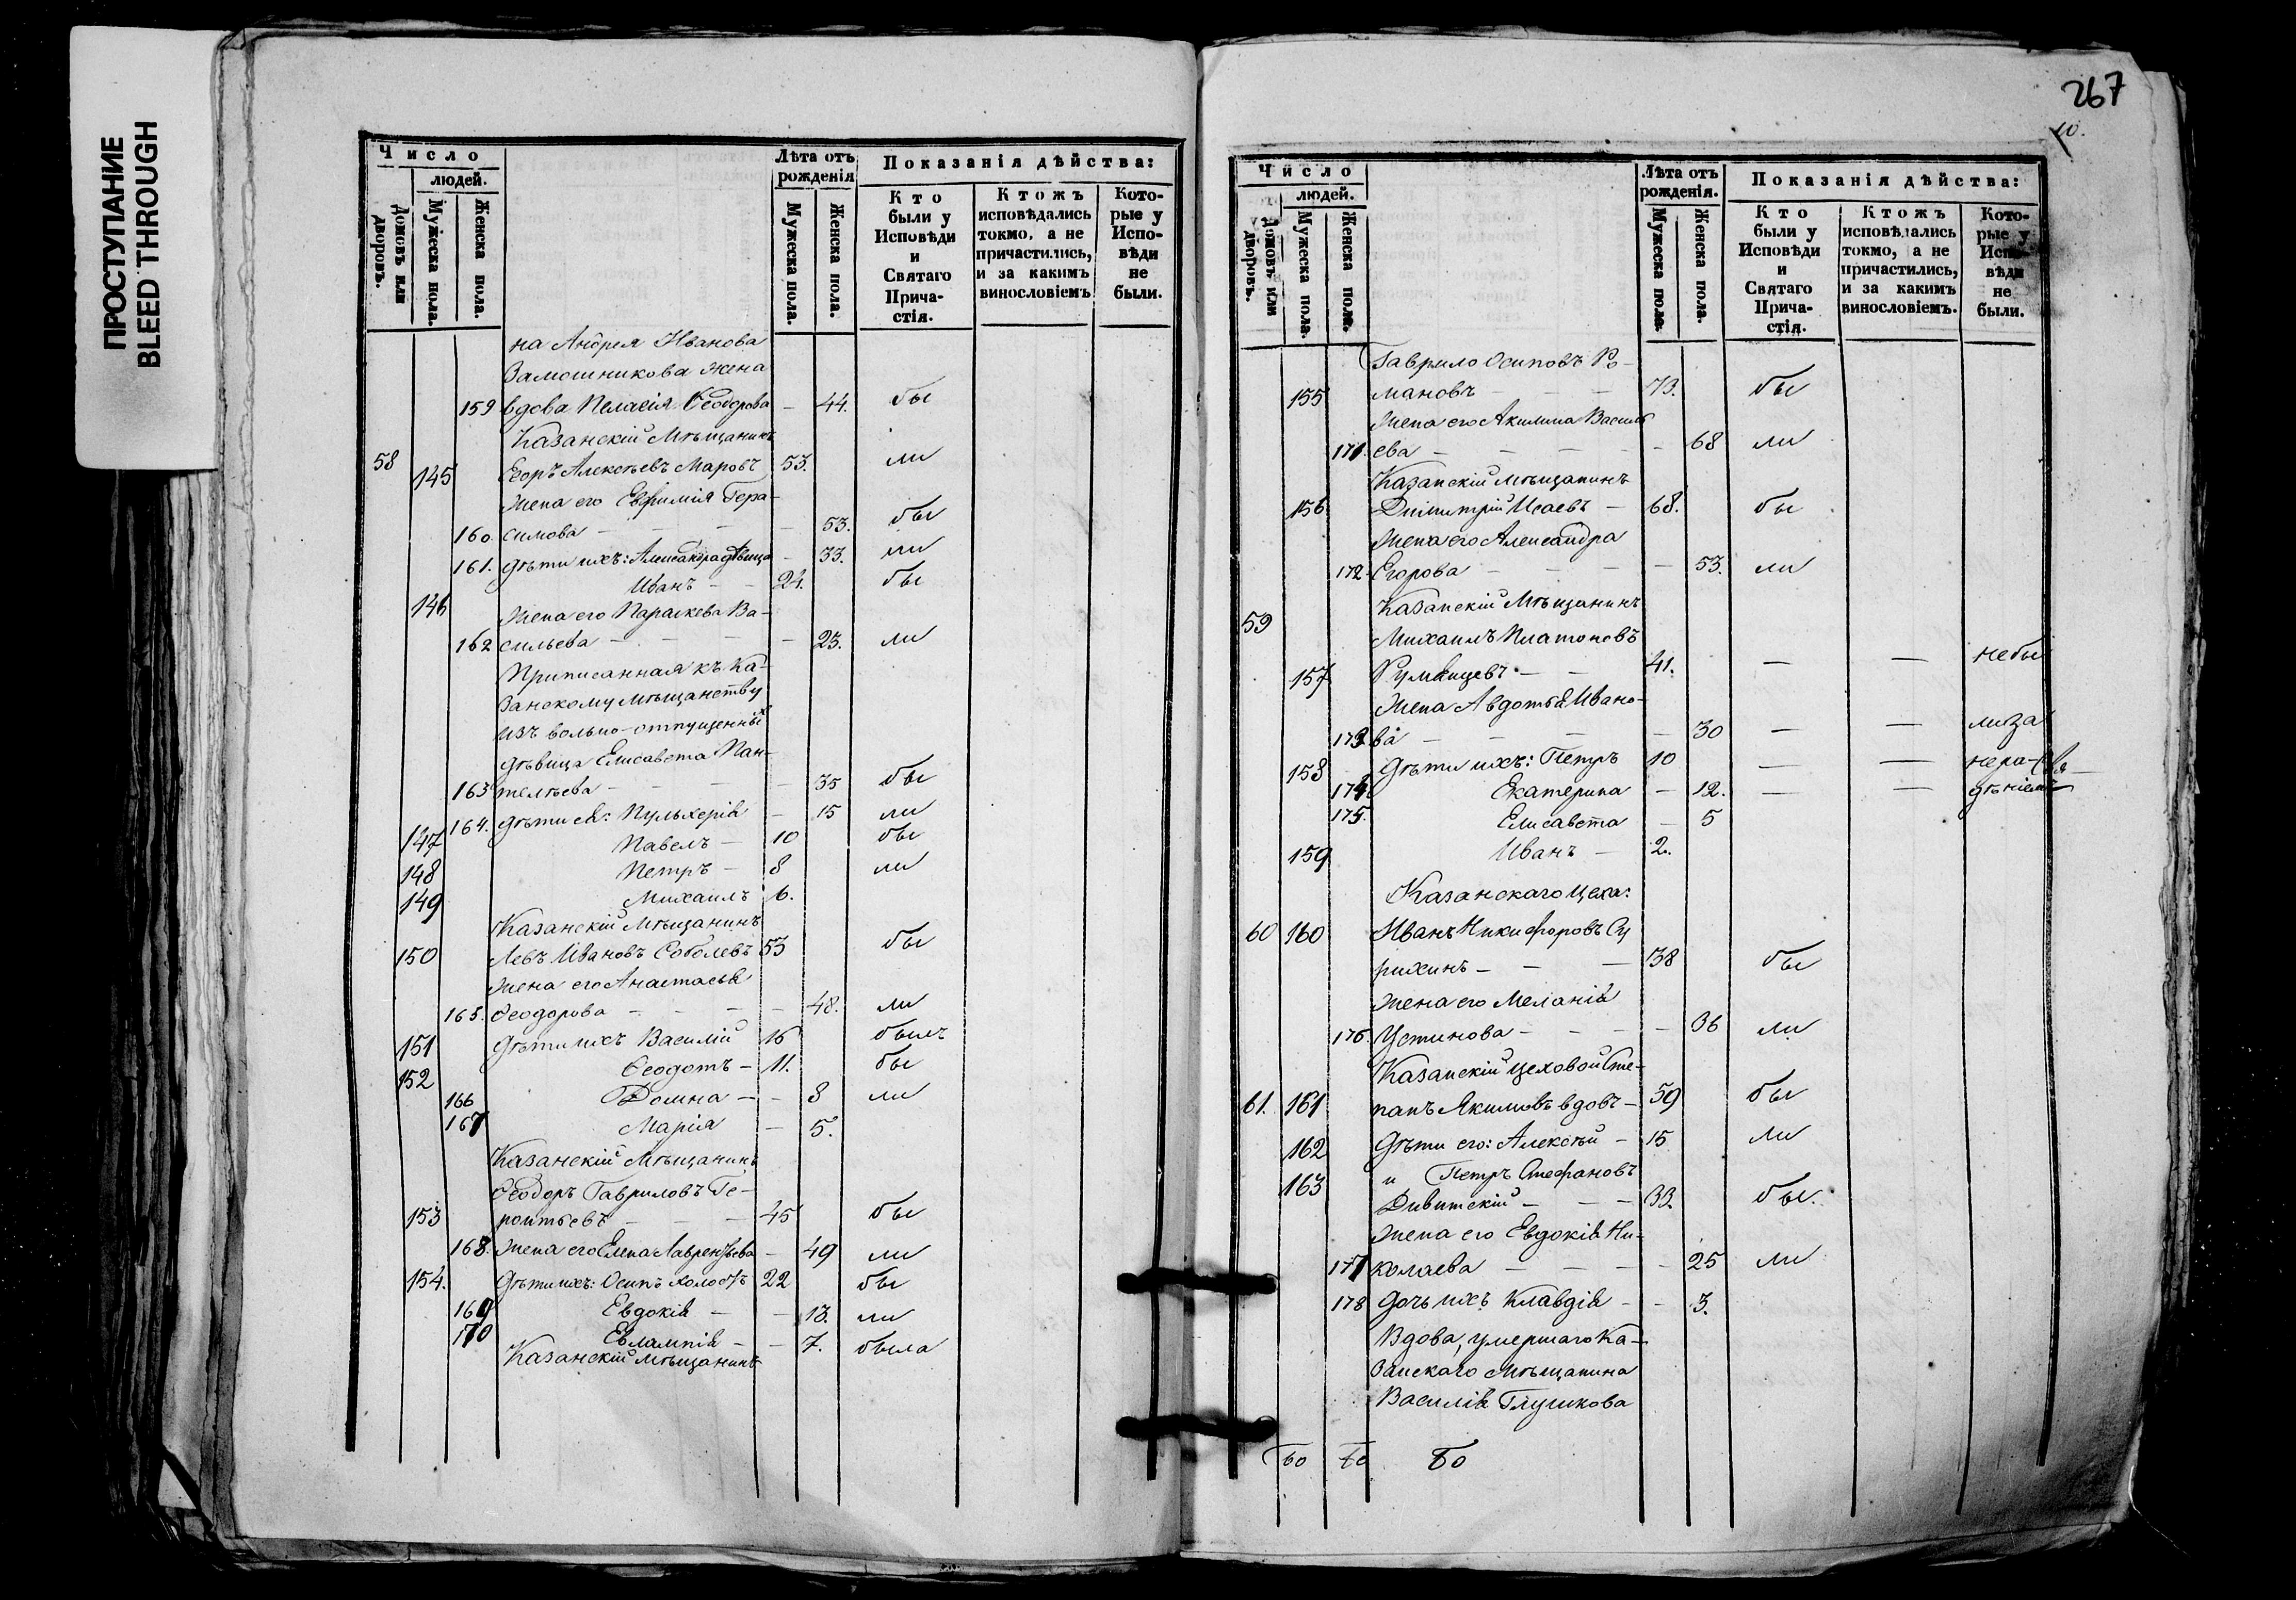 ПРОСТУПАНИЕ
BLEED THROUGH
Число
людей.
Домовъ или дворовъ.
Мужеска пола.
Женска пола.
Лѣта отъ рожденія
Мужеска пола.
Женска пола.
Показанія дѣйства:
Кто были у Исповѣди и Святаго Прича-стія.
Ктожъ исповѣдались токмо, а не причастились, и за какимъ винословіемъ
Кото-рые у Испо-вѣди не были.
на Андрея Иванова
Замошникова жена
159 вдова Пелагія Ѳеодорова – 44. бы
Казанскій Мѣщанинъ
58 145 Егоръ Алексѣевъ Маровъ 53. ли
жена его Евфимія Гера-
160. симова – – 53. бы
161. дѣти ихъ: Александра дѣвица – 33. ли
146 Иванъ – – 24. бы
жена его Параскева Ва-
162 сильева – – – – 23. ли
Приписанная къ Ка-
занскому мѣщанству
изъ вольно-отпущенных
дѣвица Елисавета Пан-
163 телѣева – – – 35 бы
164. дѣти ея: Пульхерія – 15 ли
147 Павелъ – 10 бы
148 Петръ – 8 ли
149 Михаилъ 6.
Казанскій Мѣщанинъ
150 Левъ Ивановъ Соболевъ 53 бы
жена его Анастасья
165. Ѳеодорова – – – – 48. ли
151 Дѣти ихъ Василій 16 былъ
152 Ѳеодотъ – 11. бы
166 Домна – – 8 ли
167 Марія – 5.
Казанскій Мѣщанинъ
Ѳеодоръ Гавриловъ Те-
153 ронтьевъ – – – 45 бы
168. жена его Елена Лаврентьева – 49 ли
154. Дѣти ихъ: Осипъ холостъ 22 бы
169 Евдокія – – 13. ли
170 Евлампія – – 7. была
Казанскій мѣщанинъ
267
10.
Число
людей.
Домовъ или дворовъ.
Мужеска пола.
Женска пола.
Лѣта отъ рожденія.
Мужеска пола.
Женска пола.
Показанія дѣйства:
Кто были у Исповѣди и Святаго Прича-стія.
Ктожъ исповѣдались токмо, а не причастились, и за какимъ винословіемъ.
Кото-рые у Испо-вѣди не были.
Гаврило Осиповъ Ро-
155 мановъ – – – 73. бы
жена его Акилина Василь
171. ева – – – – – 68 ли
Казанскій мѣщанинъ
156 Димитрій Исаевъ – 68. бы
жена его Александра
172. Егорова – – – – 53. ли
Казанскій Мѣщанинъ
59 Михаилъ Платоновъ
157 Румянцевъ – – 41. – – небы
Жена Авдотья Ивано-
173 ва – – – – 30 – – ли за
158 Дѣти ихъ: Петръ 10 – – нера-
174 Екатерина – 12. – – дѣніемъ
175. Елисавета – 5
159 Иванъ – 2.
Казанскаго Цеха:
60 160 Иванъ Никифоровъ Су
рихинъ – – – 38 бы
жена его Меланія
176. Устинова – – – – 36 ли
Казанскій цеховой Сте-
61. 161 панъ Якимовъ вдовъ – 59 бы
162 Дѣти его: Алексѣй – 15 ли
163 и Петръ Стефановъ
Дивитскій – – – 33. бы.
жена его Евдокія Ни-
177 колаева – – – – 25 ли
178 Дочь ихъ Клавдія – – 3.
Вдова, умершаго Ка-
занскаго Мѣщанина
Василія Глушкова